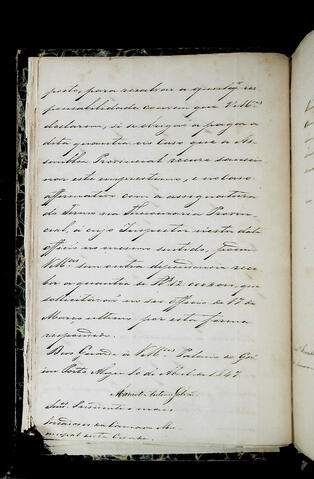 posto, para resalvar a quantia res
ponsabilidade convem que VMces
declarem, si se obrigão a pagar a
dita quantia no caso que a As
semblea Provincial recuse sancio
nar este emprestimo, e no caso
affirmativo com a assignatura
do Termo na Thesouraria Provin
cial, a cujo Inspector nesta data
officio no mesmo sentido, podem
VMces sem outra dependencia rece
ber a quantia de
solicitarão em seu officio de 17 de
Março ultimo por esta forma
respondido.
Deos Guarde a VMces Palacio do Go
verno em Porto Alegre 10 de Abril de 1847
Manoel Antonio Galvão
Snrs. Presidente e mais
Vereadores da Camara Mu
nicipal desta Cidade.